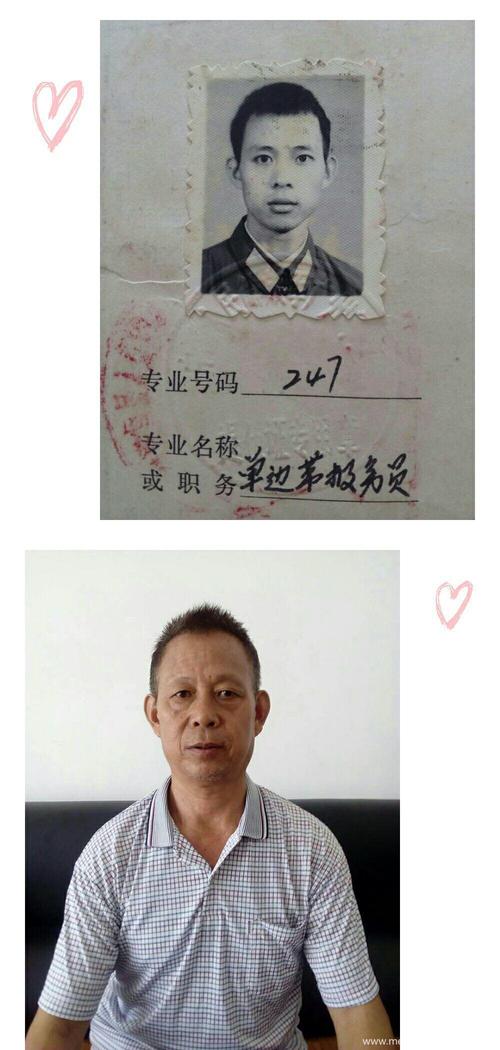 专业号码 247
专业名称
或职务 单边带报务员
www.me